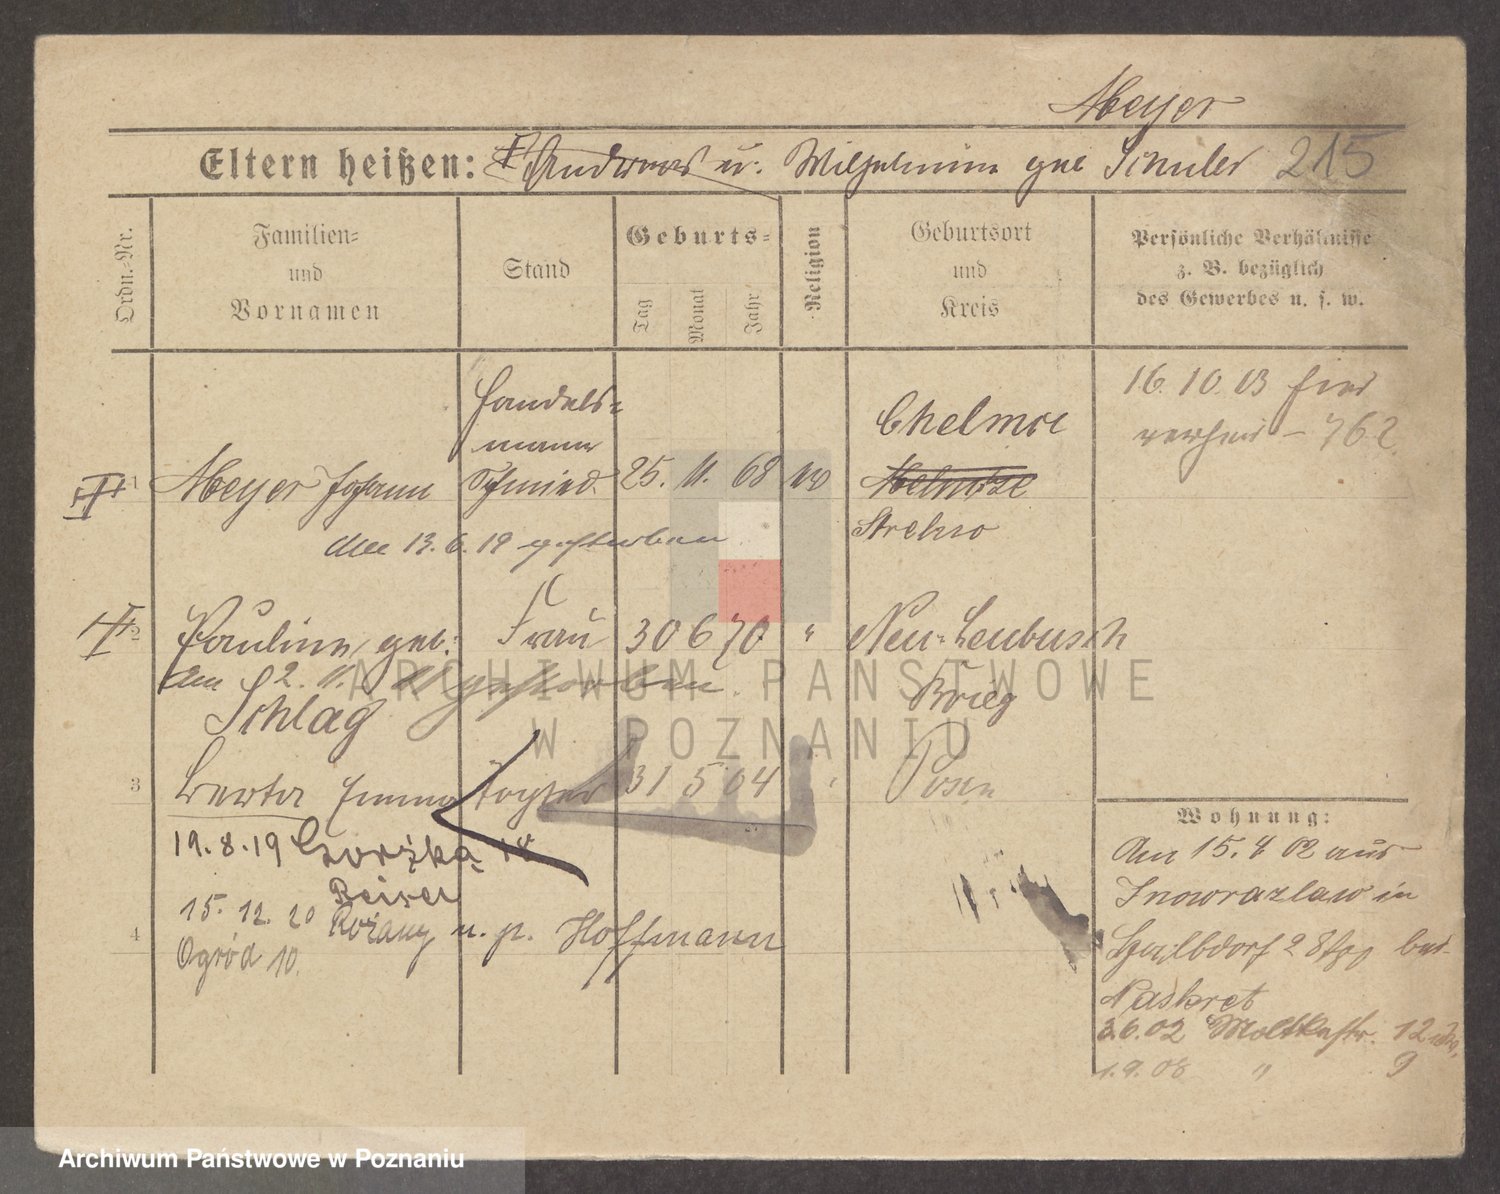 Meyer
Eltern heißen: Andreas u. Wilhelmine geb Schuler 215
Ordn.-Nr.
Familien-
und
Vornamen
Stand
Geburts-
Tag
Monat
Jahr
Religion
Geburtsort
und
Kreis
Persönliche Verhältnisse
z. B. bezüglich
des Gewerbes u. s. w.
Handels-
mann
1 Meyer Johann Schmied. 25. 11. 68
Chelmce
Strelno
16. 10. 03
762
13. 6. 19 gestorben
2 Pauline, geb. Frau 30 6 70 " Neu-Leubusch
am 2. 11. gestorben
Schlag
Brieg
3 Emma Tochter 31 5 04 " Posen
19.8.19 Gorzka 18
15. 12. 20 Rożany u. p. Hoffmann
4
Ogród 10.
Wohnung:
Am 15. 4 02 aus
Inowrazlaw in
2 bei
Naskret
3.6.02 Moltkestr. 12
1.9.08 " 9
ARCHIWUM PAŃSTWOWE
W POZNANIU
Archiwum Państwowe w Poznaniu